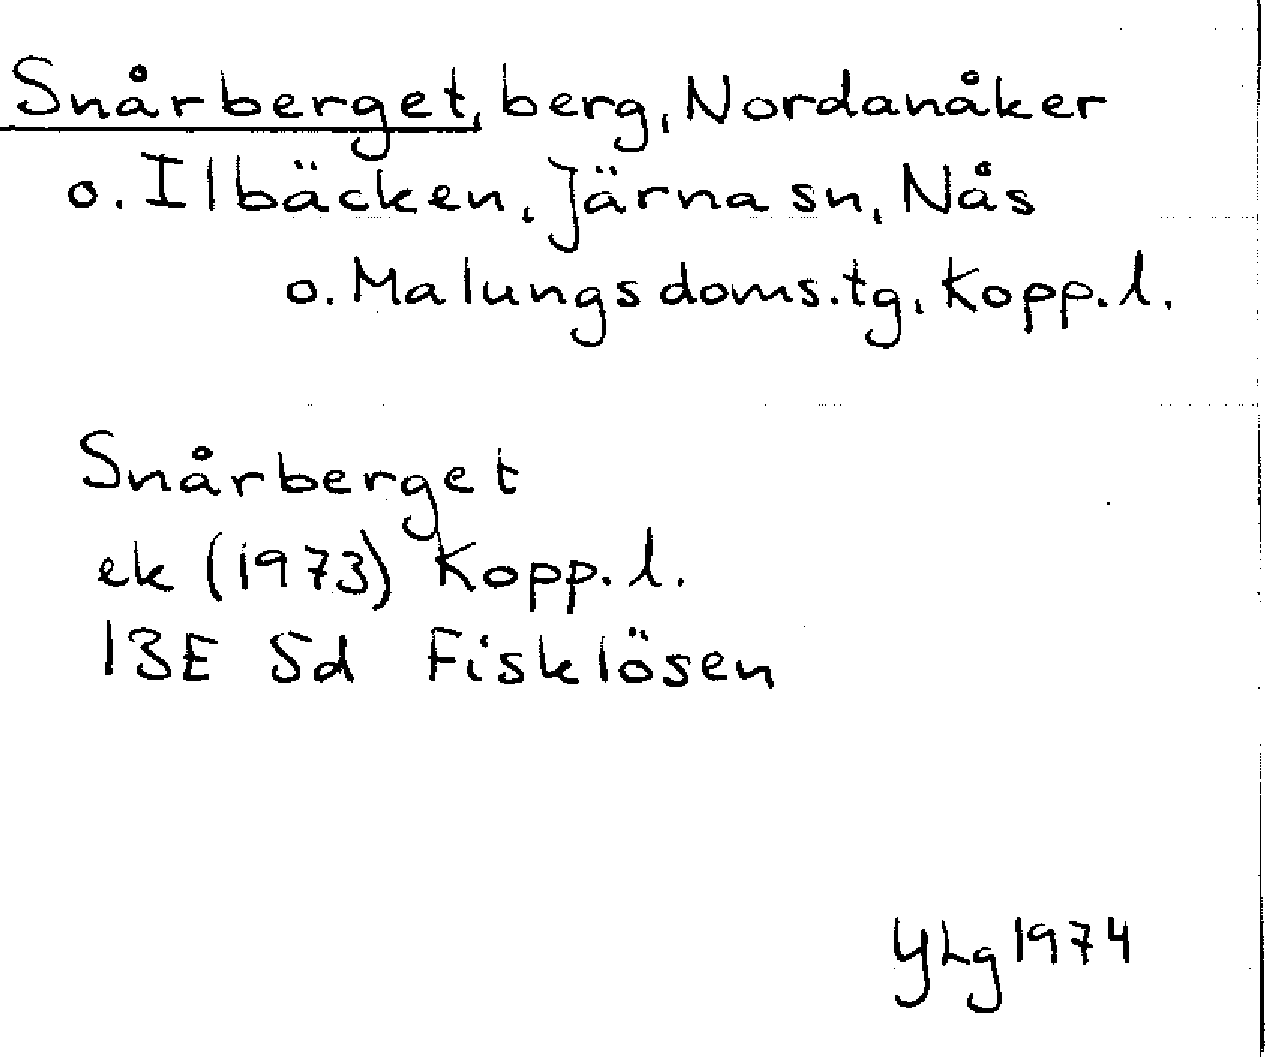 Snårberget, berg, Nordanåker
o. Ilbäcken, Järna sn, Nås
o. Malungs doms.tg, Kopp. l.
Snårberget
ek (1973) Kopp. l.
13E 5d Fisklösen
YLg 1974